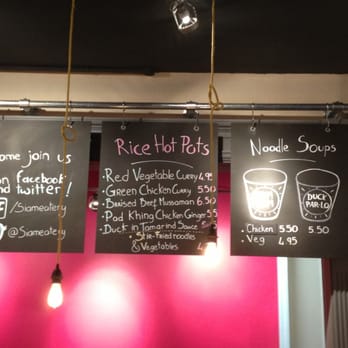 ome join us
on facebook
nd twitter!
/Siameatery
@Siameatery
Rice Hot Pots
• Red Vegetable Curry 4.95
• Green Chicken Curry 5.50
• Braised Beef Mussaman 6.
• Pad Khing Chicken Ginger 5.5
• Duck in Tamarind Sauce
• Stir-Fried noodles
& Vegetables
Noodle Soups
DUCK
• Chicken 5.50 5.50
• Veg 4.95